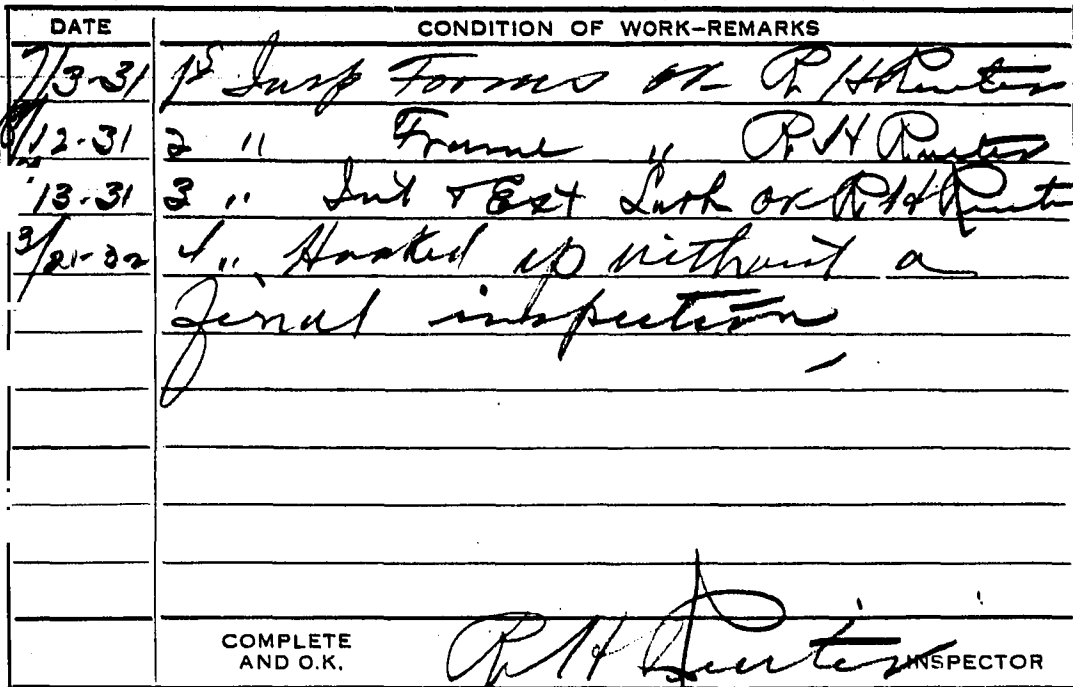 DATE CONDITION OF WORK-REMARKS
7/3-31 1st Insp Forms OK R H
12-31 2 " Frame " R H
13-31 3 " Int & Ext Lath OK R H
3/21-32 4 " Hooked up without a
final inspection
COMPLETE
AND O.K. R H INSPECTOR